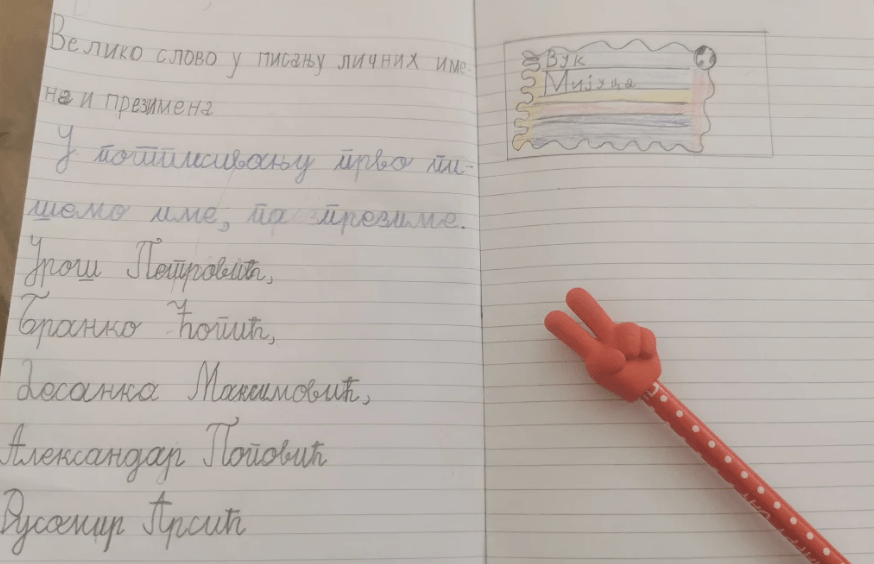 Велико слово у писању личних име-
на и презимена
У потписивању прво пи-
шемо име, па презиме.
Урош Петровић,
Бранко Ћопић,
Десанка Максимовић,
Александар Поповић
Арсић
Вук
Мијуца